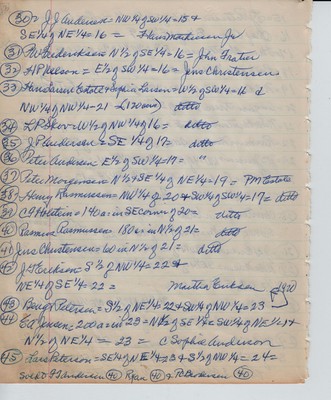 (30) = J J Anderson = NW¼ of SW¼ = 15 &
SE¼ of NE¼ = 16 = Hans Mathiesen Jr
(31) P W Frederiksen = N½ of SE¼ = 16 = John Frater
(32) H P Nelson = E½ of SW¼ = 16 = Jens Christensen
(33) Hans Larsen Estate & Sophia Larsen = W½ of SW¼ = 16 &
NW¼ of NW¼ - 21 (120 acres) ditto
(34) L P Skov = W½ of NW¼ of 16 = ditto
(35) J P Anderson = SE¼ of 17 = ditto
(36) Peter Anderson E½ of SW¼ = 17 = "
(37) Peter Morgensen N½ & SE¼ of NE¼ = 19 = PM Estate
(38) Henry Rasmussen = NW¼ of 20 & SW¼ of SW¼ = 17 = ditto
(39) C P = 140 a = in SE corner of 20 = ditto
(40) Rasmus Rasmussen = 180 a = in N½ of 21 = ditto
(41) Jens Christensen = 60 in N½ of 21 = ditto
(42) J. Erikson = S½ of NW¼ = 22 &
NE¼ of SE¼ = 22 = Martha Erikson
(43) Petersen = S½ of NE¼ 22 & SW¼ of NW¼ = 23
(44) Ed Jensen = 200 a = in 23 = N½ of SE¼ & SW¼ of NE¼ &
N½ of NE¼ = 23 = C Sophie Anderson
(45) Lars Peterson = SE¼ of NE¼ 23 & S½ of NW¼ = 24 =
Sold to J J Anderson (40) Ryan (40) & Anderson (40)